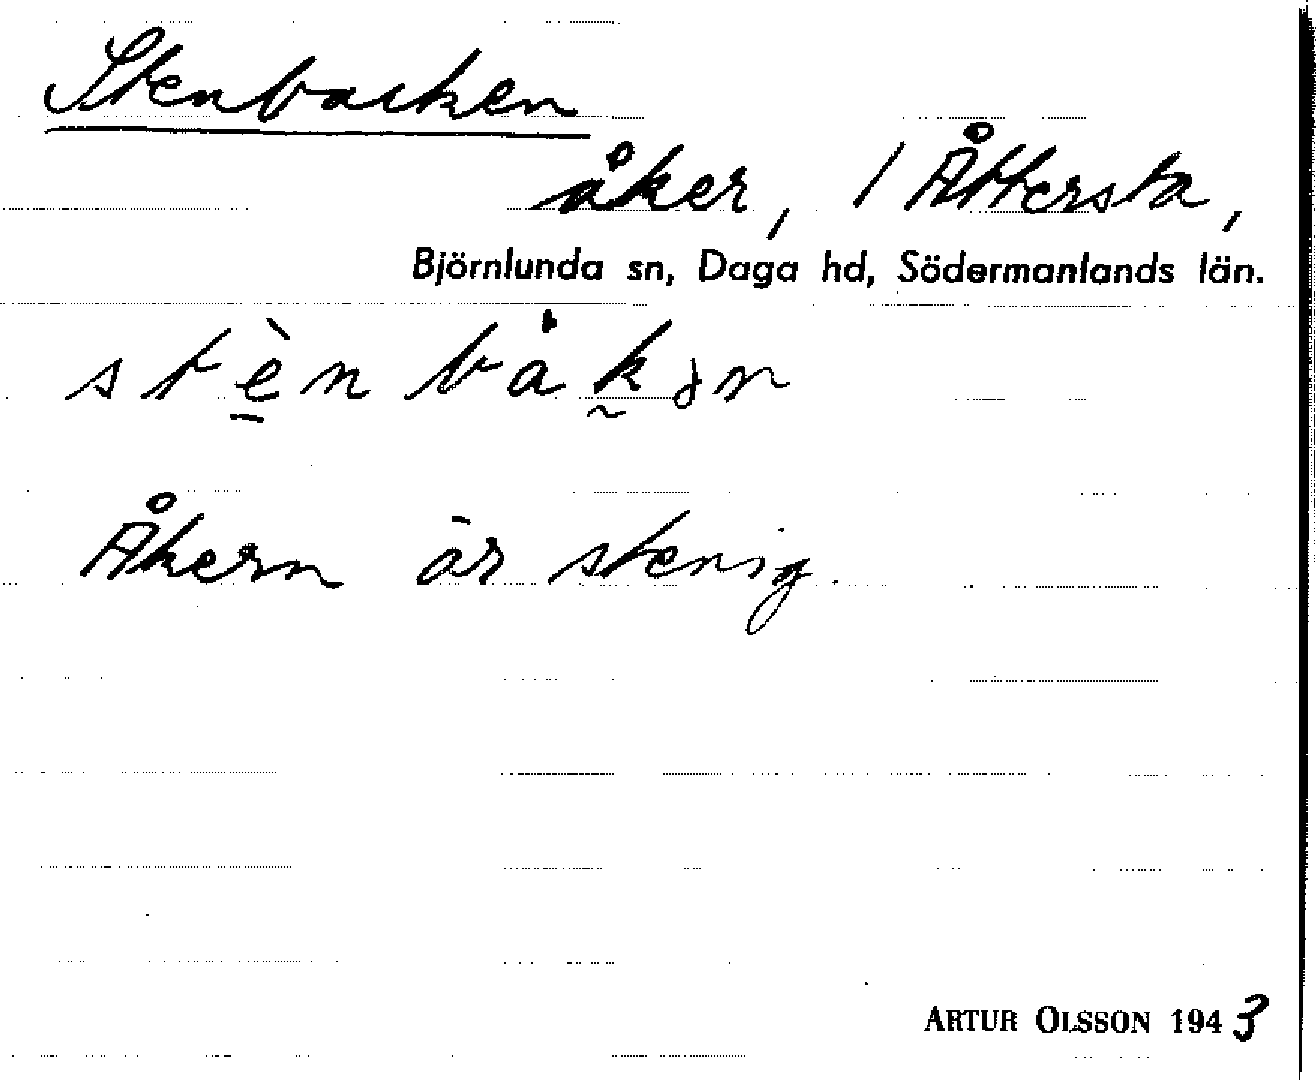 Stenbacken
åker, / Åttersta,
Björnlunda sn, Daga hd, Södermanlands län.
stè̱nbȧk̰ən
Åkern är stenig.
ARTUR OLSSON 1943